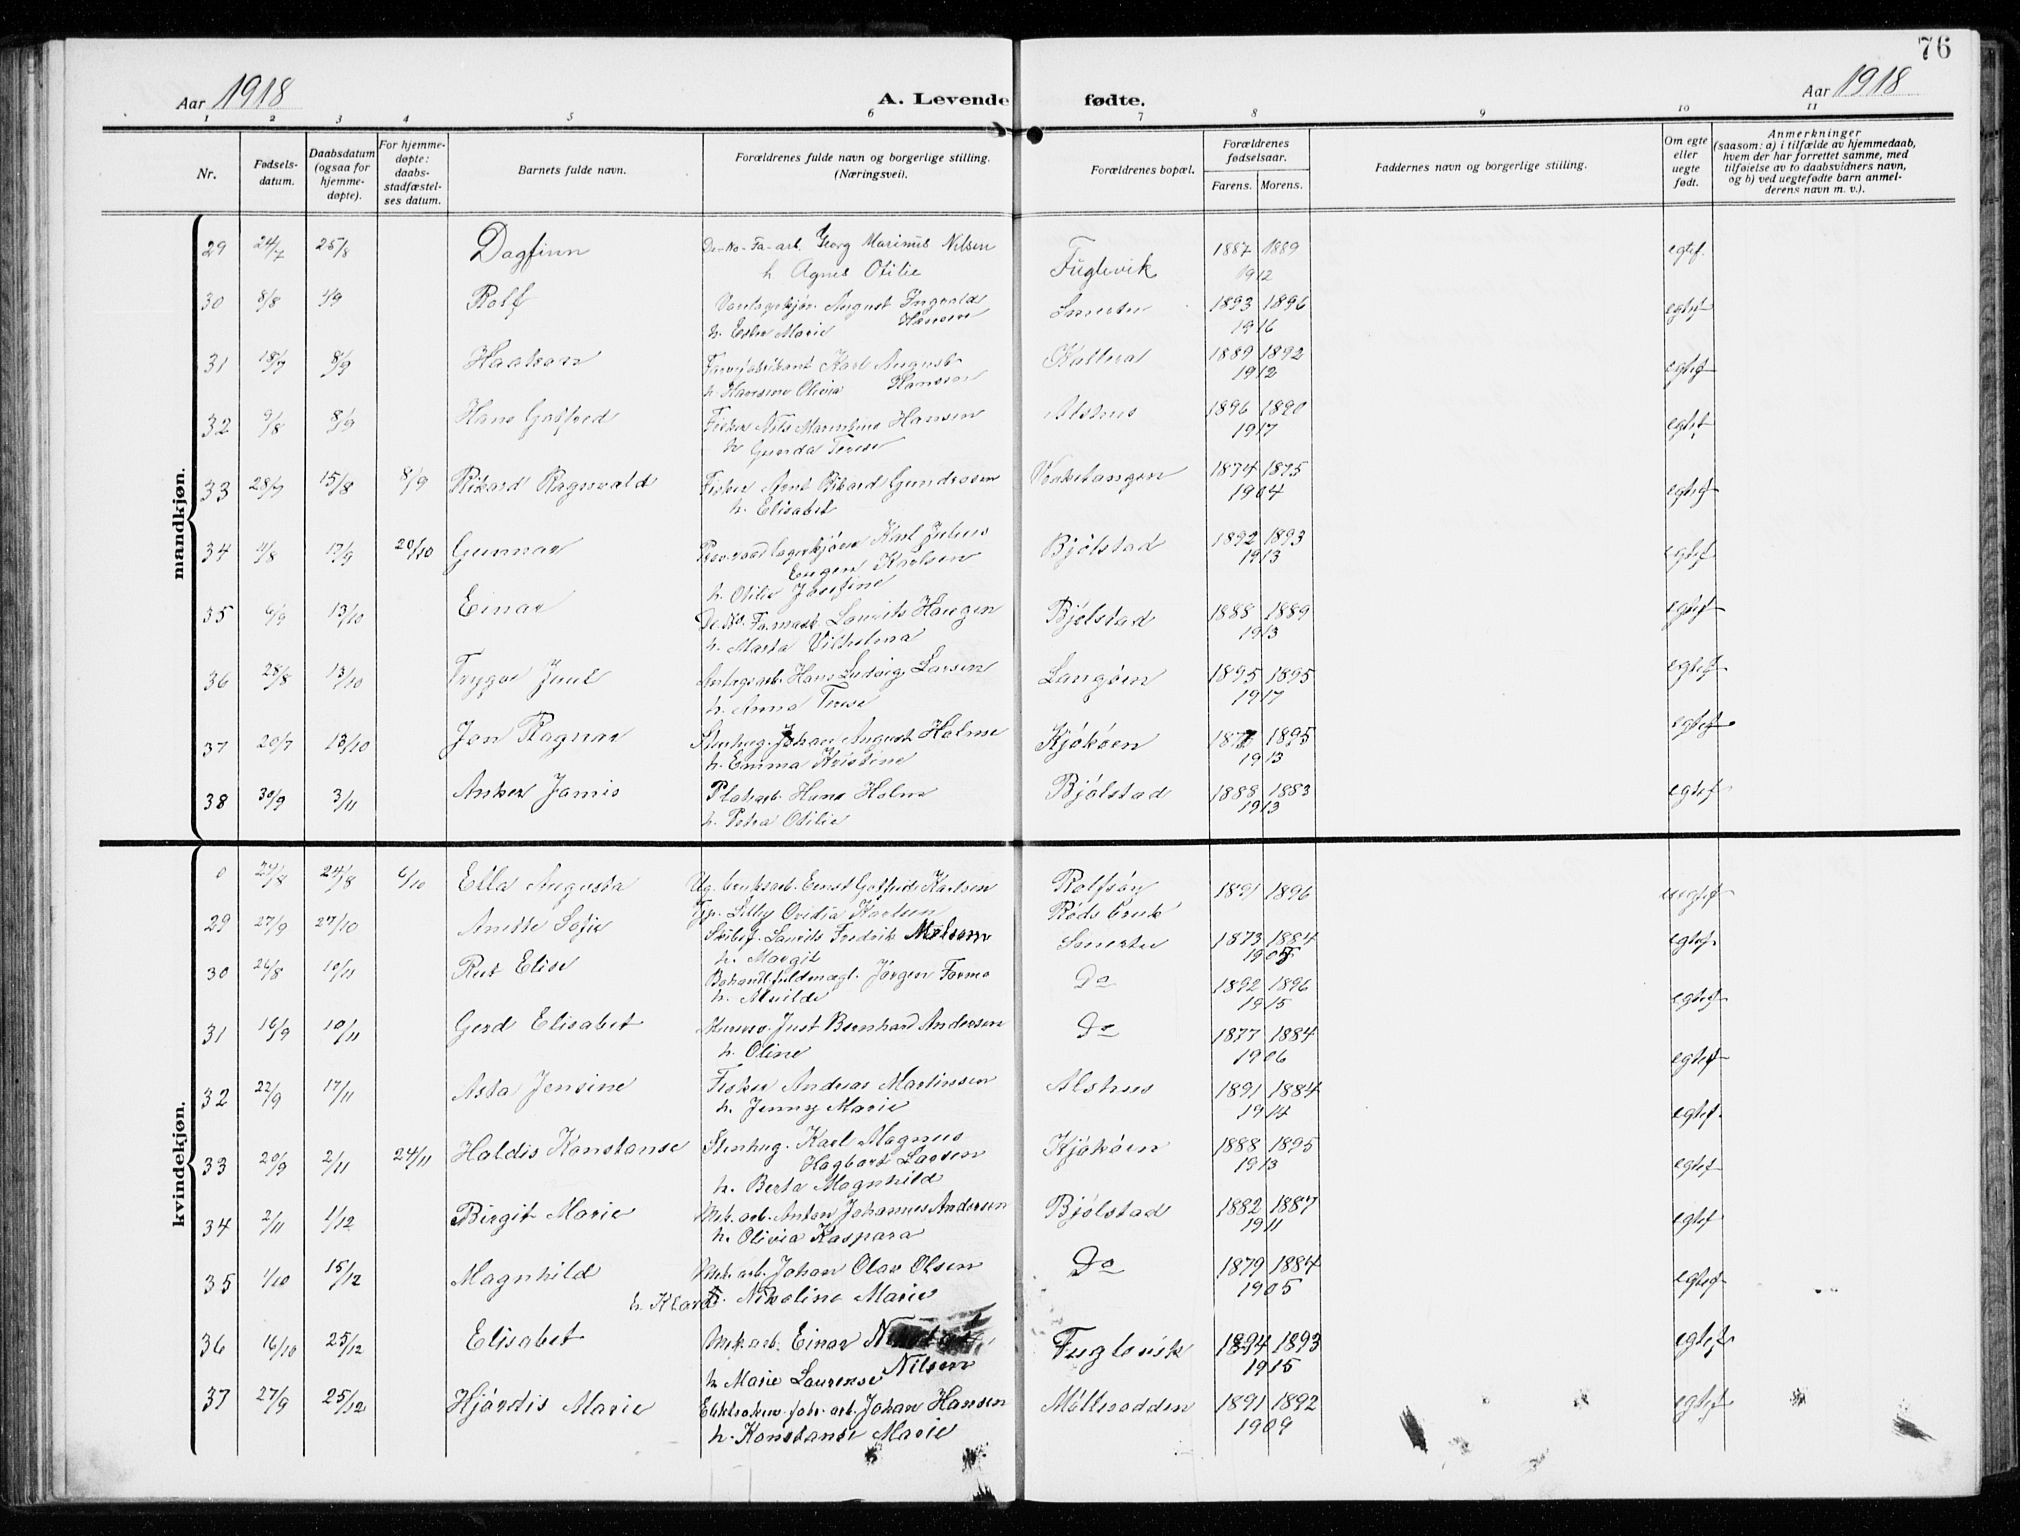 76
Aar 1918
A. Levende fødte.
Aar 1918
1 2 3 4 5 6 7 8 9 10 11
Nr.
Fødselsdatum.
Daabsdatum (ogsaa for hjemmedøpte).
For hjemmedøpte: daabsstadfæstelses datum.
Barnets fulde navn.
Forældrenes fulde navn og borgerlige stilling. (Næringsvei).
Forældrenes bopæl.
Forældrenes fødselsaar.
Farens. Morens.
Faddernes navn og borgerlige stilling.
Om egte eller uegte født.
Anmerkninger (saasom: a) i tilfælde av hjemmedaab, hvem der har forrettet samme, med tilføielse av to daabsvidners navn, og b) ved uegtefødte barn anmelderens navn m. v.).
mandkjøn.
29 24/7 25/8 Dagfinn Georg Marinus Nilsen Fuglevik 1887 1889 egtef.
h. Agnes Otilie 1912
30 8/8 1/9 Rolf August Ingvald Smerten 1893 1896 egtef
h. Ester Marie Hansen 1916
31 18/7 8/9 Haakon Karl August 1889 1892 egtef
Olivia Hansen 1912
32 9/8 8/9 Hans Gotfred Fisker Nils Marentius Hansen Alshus 1896 1890 egtef
h. Gunda Terese 1917
33 28/7 15/8 8/9 Rikard Ragnvald Fisker Arnt Rikard Gundersen 1874 1875 egtef
h. Elisabet 1904
34 4/8 17/9 20/10 Gunnar Karl Julius Bjølstad 1892 1893 egtef
Eugen Karlsen 1913
h. Otilie Josefine
35 6/9 13/10 Einar Laurits Haugen Bjølstad 1888 1889 egtef
h. Marta Vilhelma 1913
36 28/8 13/10 Trygve Juul Hans Ludvig Larsen Langøen 1895 1895 egtef
h. Anna Terese 1917
37 20/7 13/10 Jon Ragnar Stenhug. Johan August Holme Kjøkøen 1895 egtef
h. Emma Kristine 1913
38 30/9 3/11 Anker Jamis Platearb. Hans Holm Bjølstad 1888 1883 egtef
h. Petra Otilie 1913
kvindekjøn.
0 24/8 24/8 6/10 Ella Augusta Ug. bruksarb. Ernst Gotfred Karlsen Rolfsøy 1891 1896 uegtef
Lilly Ovidia Karlsen Røds bruk
29 27/9 27/10 Anette Sofie Laurits Fredrik Smerten 1873 1884 egtef
h. Margit
30 26/8 10/11 Rut Elise Jørgen Formo Do 1892 1896 egtef
h. Mvilde 1915
31 16/9 10/11 Gerd Elisabet Just Bernhard Andersen Do 1877 1884 egtef
h. Oline 1906
32 22/9 17/11 Asta Jensine Fisker Andreas Martinsen Alshus 1891 1884 egtef
h. Jenny Marie 1914
33 20/9 2/11 24/11 Haldis Konstanse Stenhug. Karl Magnus Kjøkøen 1888 1895 egtef
Hagbart Larsen 1913
h. Berta Magnhild
34 2/11 1/12 Birgit Marie Mek. arb. Anton Johannes Andersen Bjølstad 1882 1887 egtef
h. Olivia Kaspara 1911
35 1/10 15/12 Magnhild Mek. arb. Johan Olav Olsen Do 1879 1884 egtef
h. Klara Nikoline Marie 1905
36 16/10 25/12 Elisabet Mek arb. Einar Fuglevik 1894 1893 egtef
h Marie Laurense Nilsen 1915
37 27/9 25/12 Hjørdis Marie Johan Hansen Møllerodden 1891 1892 egtef
h. Konstanse Marie 1909